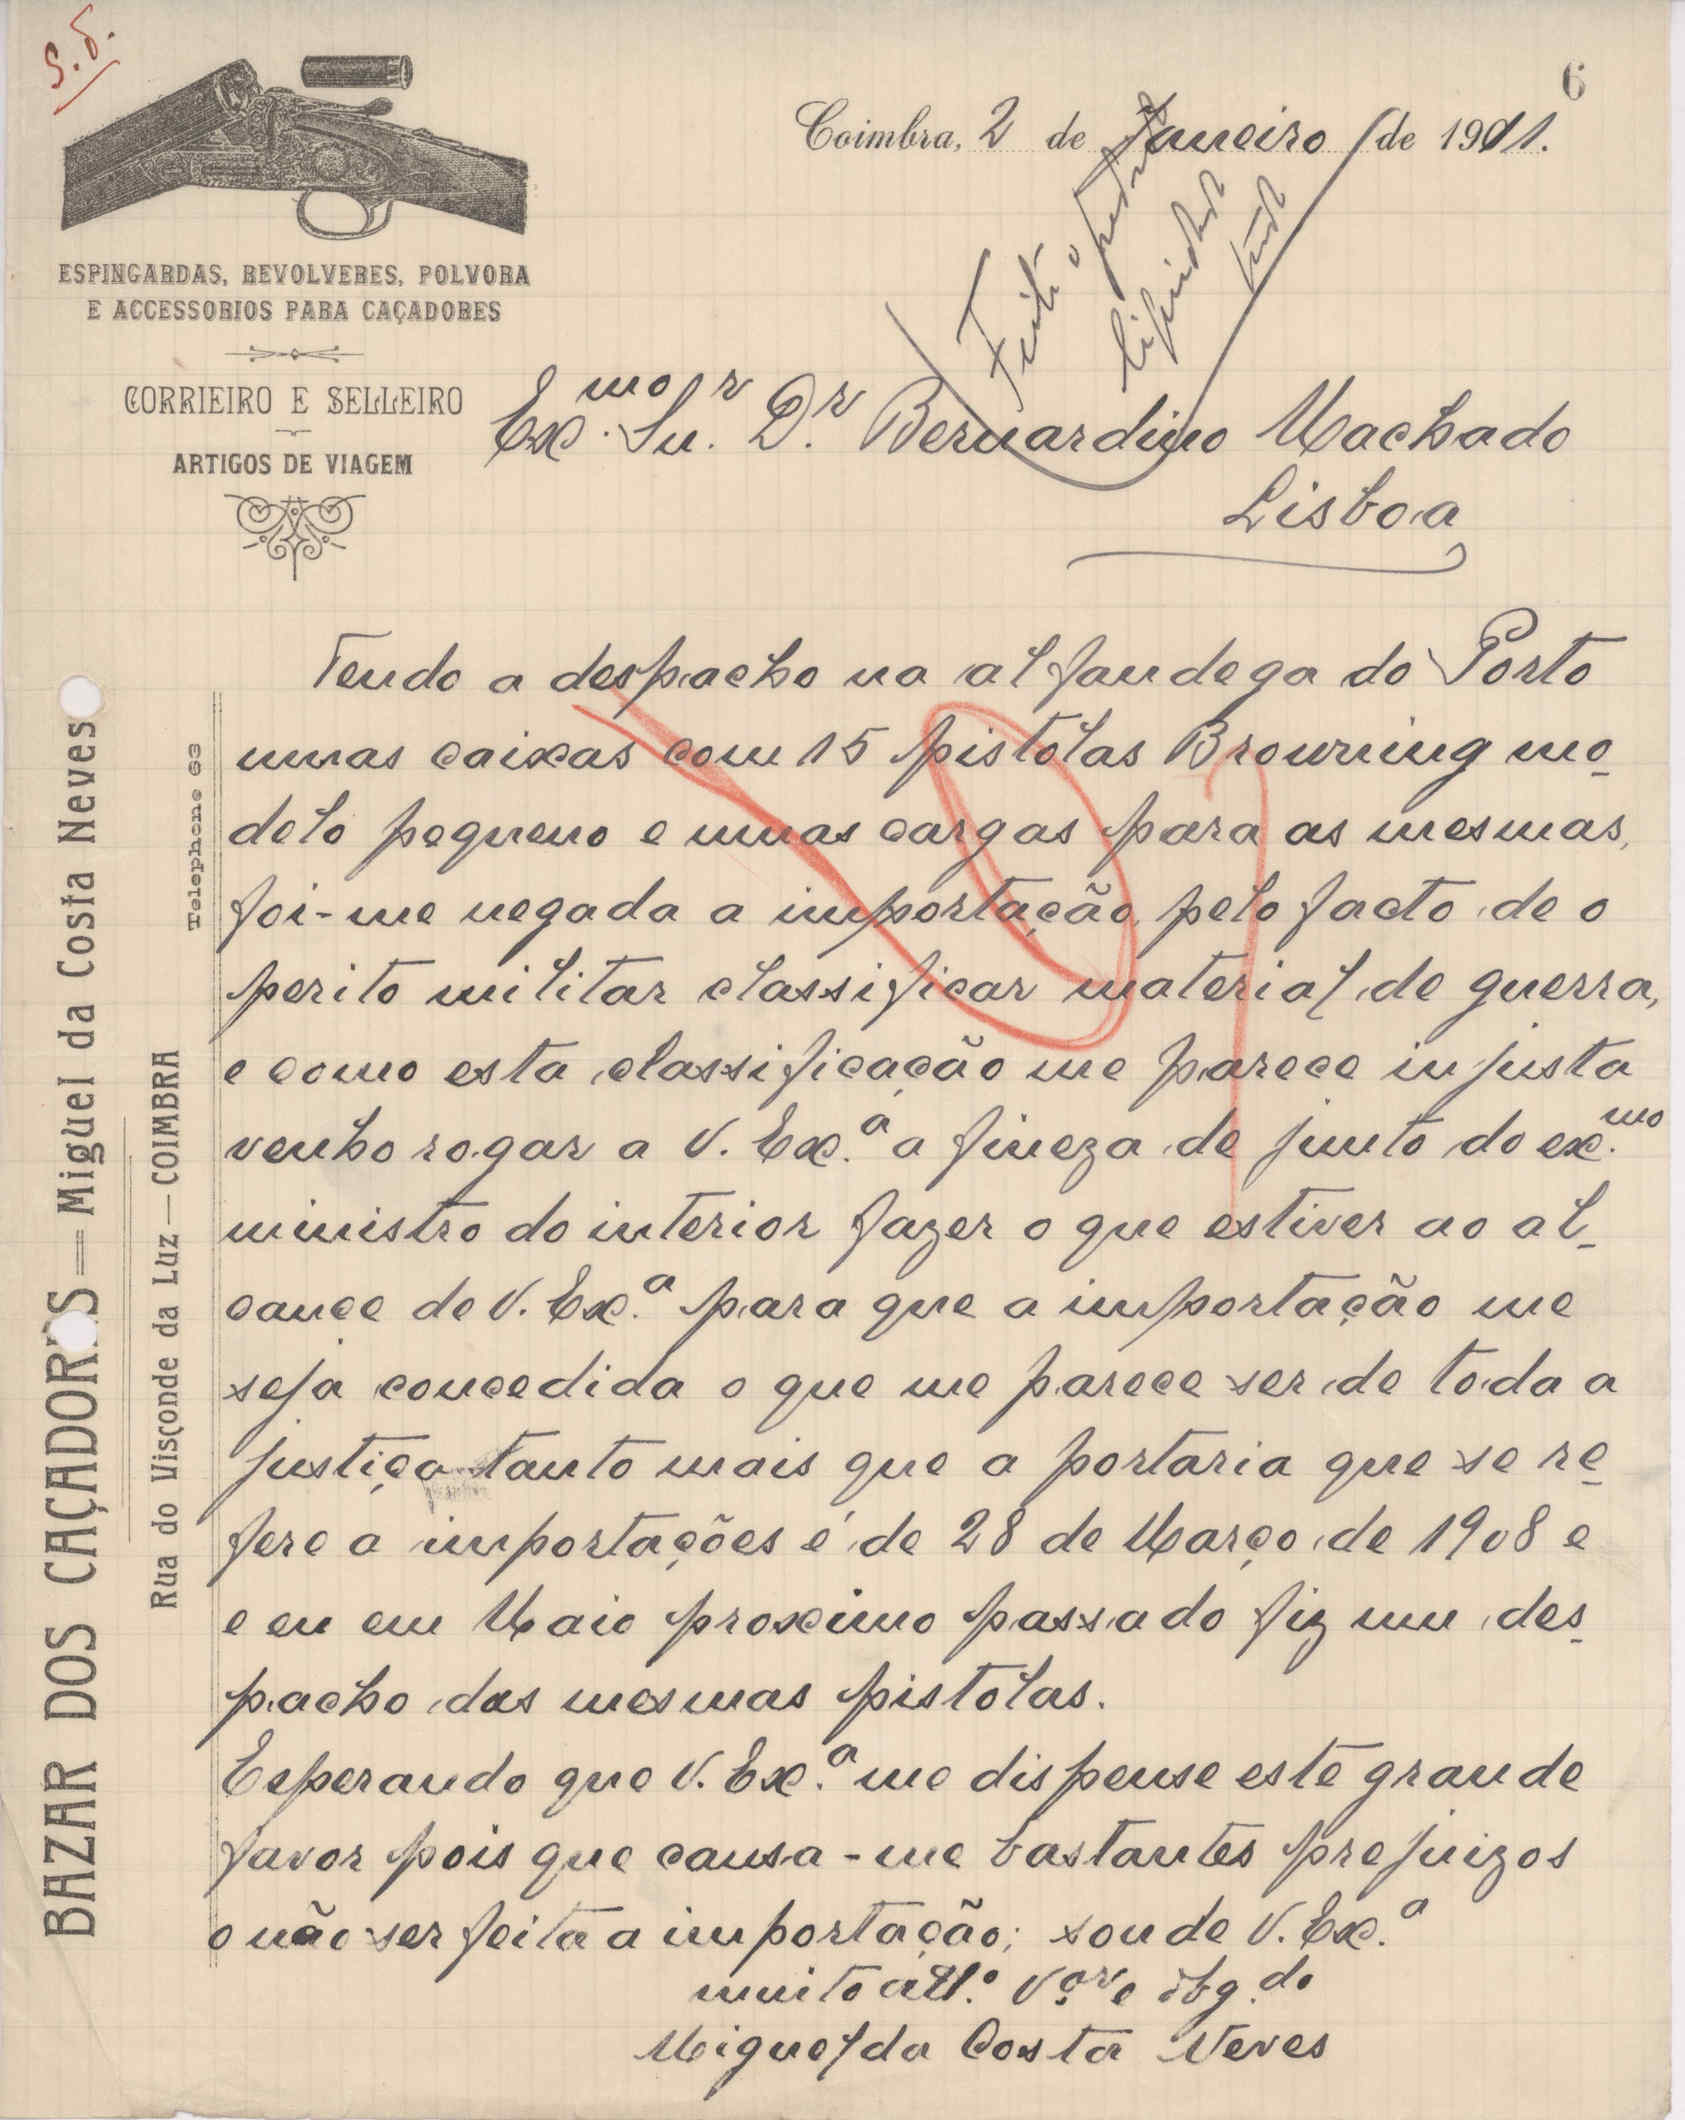 S. S.
6
Coimbra, 2 de Janeiro de 1911.
ESPINGARDAS, REVOLVERES, POLVORA
E ACCESSORIOS PARA CAÇADORES
CORRIEIRO E SELLEIRO
ARTIGOS DE VIAGEM
Feito o pedido
Ex.mo Sn.r D.r Bernardino Machado
Lisboa
BAZAR DOS CAÇADORES — Miguel da Costa Neves
Rua do Visconde da Luz — COIMBRA
Telephone 63
Tendo a despacho na alfandega do Porto
umas caixas com 15 pistolas Browning mo-
delo pequeno e umas cargas para as mesmas,
foi-me negada a importação pelo facto de o
perito militar classificar material de guerra,
e como esta classificação me parece injusta
venho rogar a V. Ex.a a fineza de junto do ex.mo
ministro do interior fazer o que estiver ao al-
cance de V. Ex.a para que a importação me
seja concedida o que me parece ser de toda a
justiça tanto mais que a portaria que se re-
fere a importações é de 28 de Março de 1908 e
e eu em Maio proximo passado fiz um des-
pacho das mesmas pistolas.
Esperando que V. Ex.a me dispense este grande
favor pois que causa-me bastantes prejuizos
o não ser feita a importação; sou de V. Ex.a
muito att.o V.or e obg.do
Miguel da Costa Neves